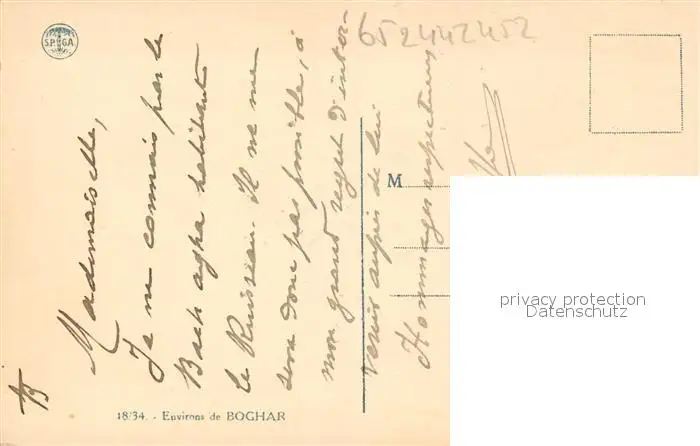 S.P.G.A.
652442452
Mademoiselle,
Je ne connais pas le
Bach agha habitant
le Ruisseau. Il ne me
sera donc pas possible, à
mon grand regret d'inter-
venir auprès de lui
Hommages respectueux
M
privacy protection
Datenschutz
18/34. - Environs de BOGHAR